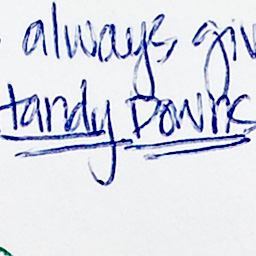 always giv
tandy Downs